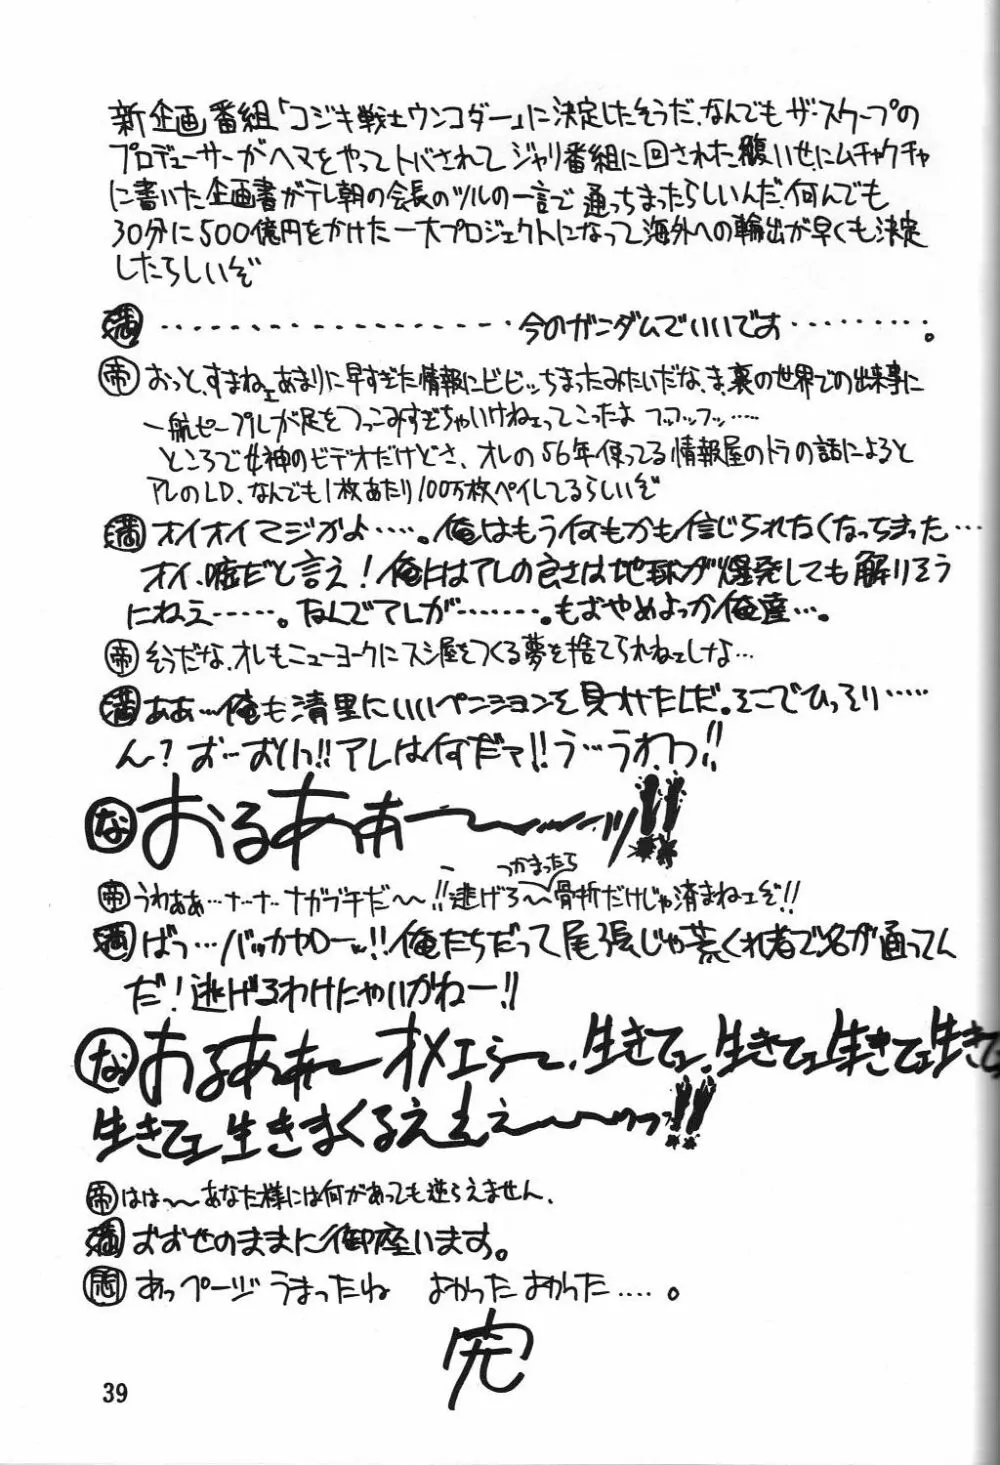 新企画番組「コジキ戦士ウンコダー」に決定したそうだ、なんでもザ・スクープの
プロデューサーがヘマをやってトバされてジャリ番組に回された腹いせにムチャクチャ
に書いた企画書がテレ朝の会長のツルの一言で通っちまったらしいんだ、何んでも
30分に500億円をかけた一大プロジェクトになって海外への輸出が早くも決定
したらしいぞ
満 ‥‥‥‥‥‥‥‥‥‥今のガンダムでいいです‥‥‥‥。
帝 おっと、すまねェあまりに早すぎた情報にビビッちまったみたいだな、ま、裏の世界での出来事に
一般ピープルが足をつっこみすぎちゃいけねェってこったよ フッフッフッ‥‥
ところで女神のビデオだけどさ、オレの56年使ってる情報屋のトラの話によると
アレのLD、なんでも1枚あたり100万枚ペイしてるらしいぞ
満 オイオイマジかよ‥‥。俺はもう何もかも信じられなくなっちまった‥
オイ、嘘だと言え!俺にはアレの良さは地球が爆発しても解りそう
にねえ‥‥‥。なんでアレが‥‥‥‥。もおやめよっか俺達‥。
帝 そうだな、オレもニューヨークにスシ屋をつくる夢を捨てられねェしな‥
満 ああ‥俺も清里にいいペンションを見つけたしだ。そこでひっそり‥‥
ん?お‥おいっ!!アレは何だァ!!う‥うわっ!!
な おるああ〜〜〜ッ!!
つかまったら
帝 うわああ‥ナ‥ナ‥ナガブチだ〜〜!!逃げろ〜骨折だけじゃ済まねェぞ!!
満 ばっ‥バッカヤローッ!!俺たちだって尾張じゃ荒くれ者で名が通ってん
だ!逃げるわけにゃいかねー!!
な おるああ〜オメエら〜、生きてェ、生きてェ生きてェ生きて
生きてェ生きまくるええぇ〜〜っっ!!
帝 はは〜〜あなた様には何があっても逆らえません、
満 おおせのままに御座います。
あっページうまったね よかったよかった‥‥。
完
39